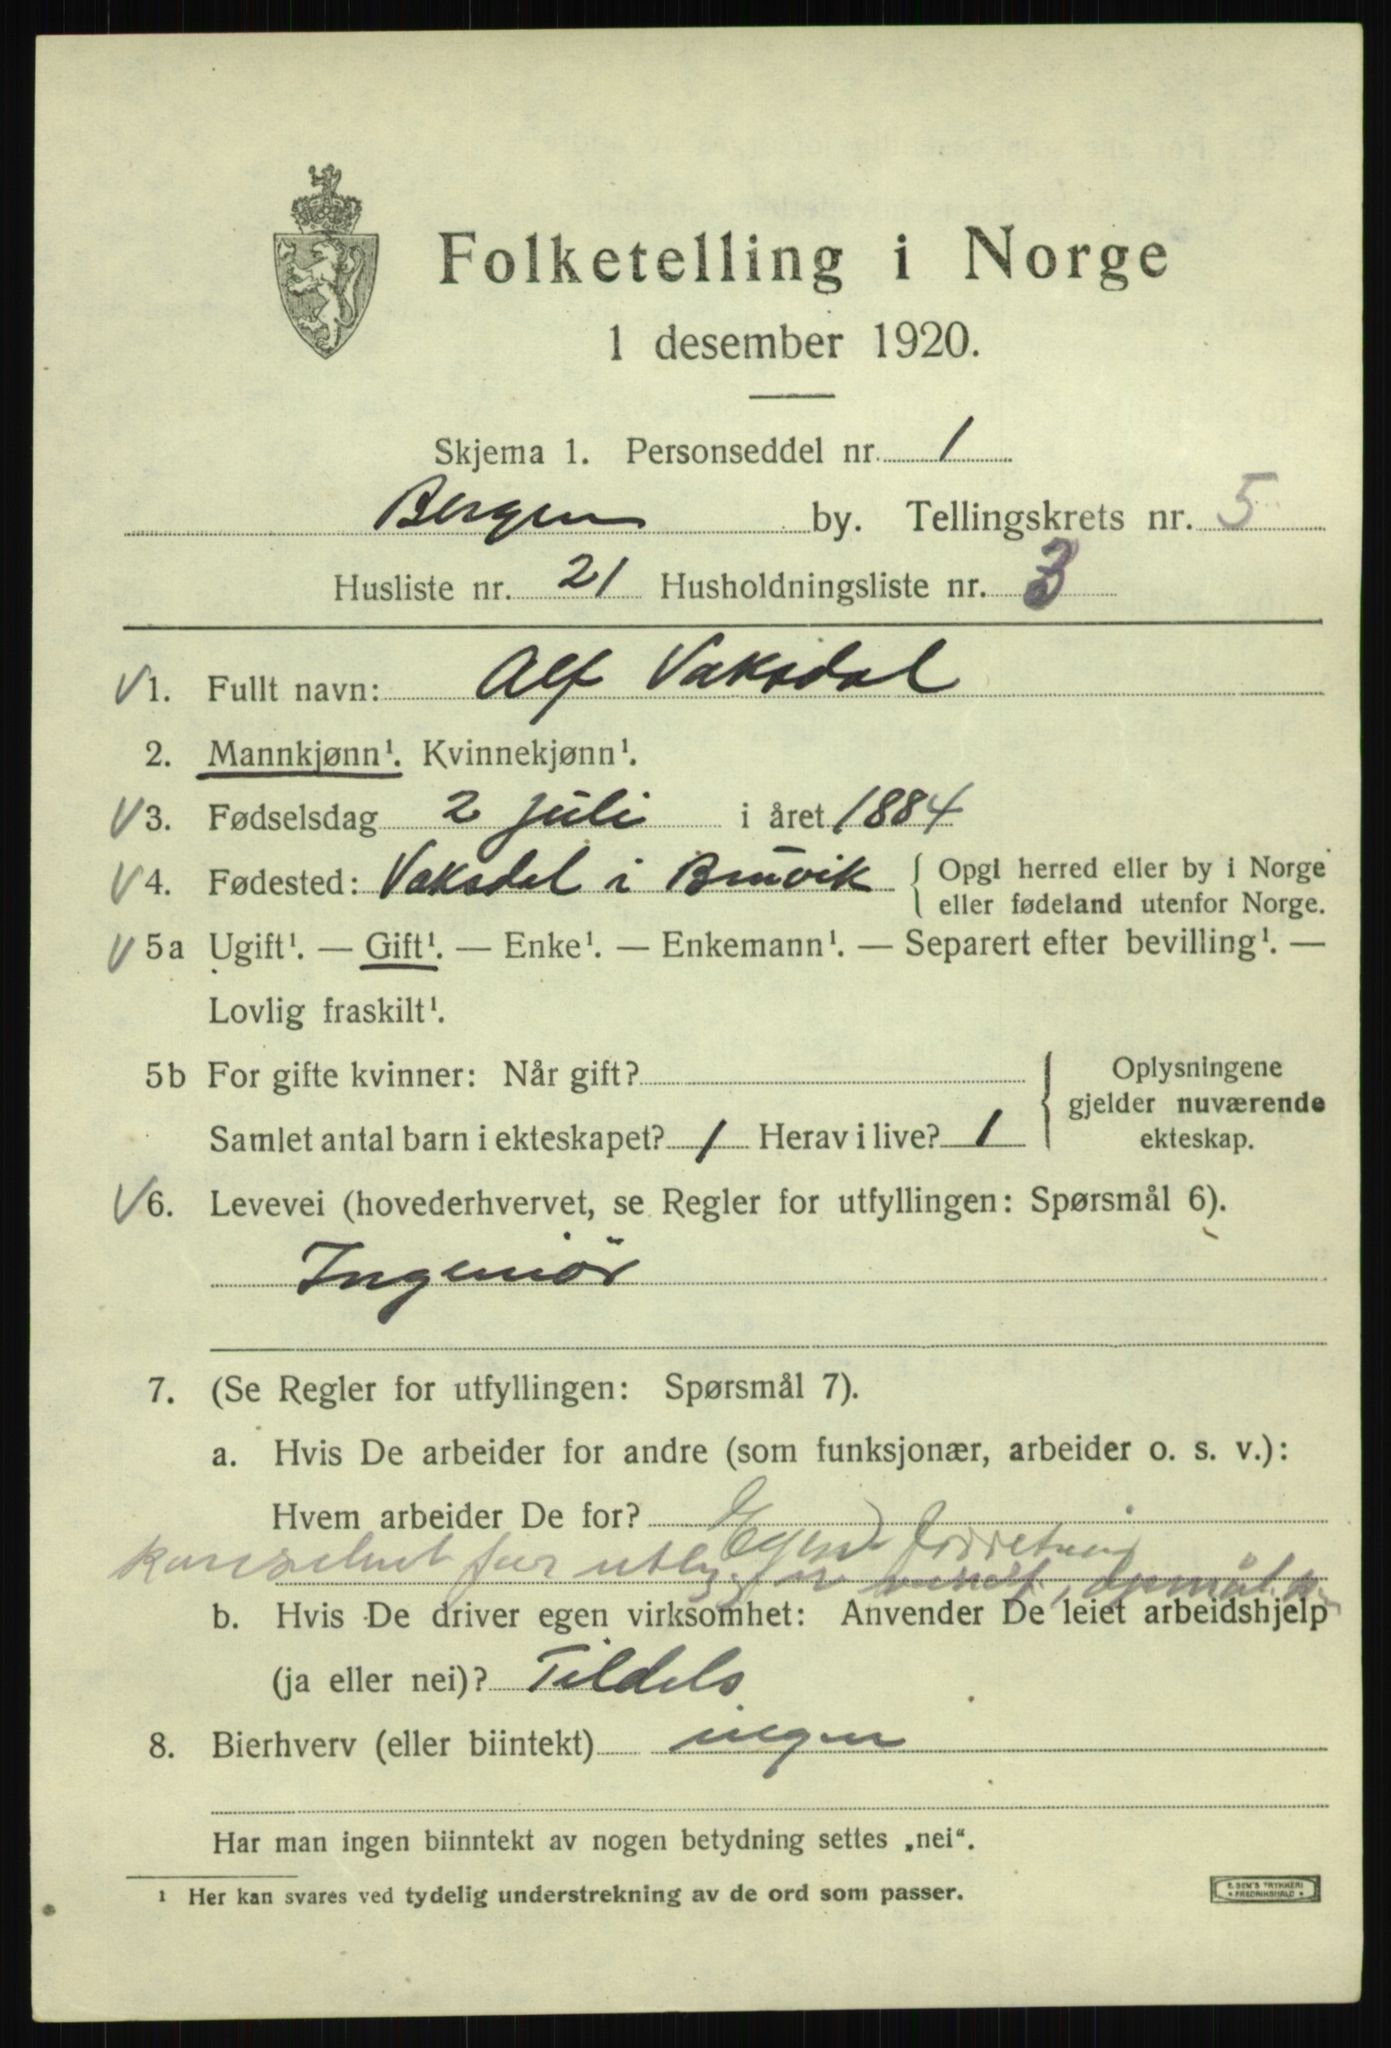 Folketelling i Norge
1 desember 1920.
Skjema 1. Personseddel nr. 1
Bergen by. Tellingskrets nr. 5
Husliste nr. 21 Husholdningsliste nr. 3
V 1. Fullt navn: Alf Vaksdal
2. Mannkjønn¹. Kvinnekjønn¹.
V 3. Fødselsdag 2 juli i året 1884
V 4. Fødested: Vaksdal i Bruvik { Opgi herred eller by i Norge
eller fødeland utenfor Norge.
V 5a Ugift¹. — Gift¹. — Enke¹. — Enkemann¹. — Separert efter bevilling¹. —
Lovlig fraskilt¹.
5b For gifte kvinner: Når gift? { Oplysningene
gjelder nuværende
Samlet antal barn i ekteskapet? 1 Herav i live? 1 ekteskap.
V 6. Levevei (hovederhvervet, se Regler for utfyllingen: Spørsmål 6).
Ingeniör
7. (Se Regler for utfyllingen: Spørsmål 7).
a. Hvis De arbeider for andre (som funksjonær, arbeider o. s. v.):
Hvem arbeider De for? Egen forretning
konsulent for utbyg. av
b. Hvis De driver egen virksomhet: Anvender De leiet arbeidshjelp
(ja eller nei)? Tildels
8. Bierhverv (eller biintekt) ingen
Har man ingen biinntekt av nogen betydning settes „nei“.
¹ Her kan svares ved tydelig understrekning av de ord som passer.
E. SEM'S TRYKKERI
FREDRIKSHALD